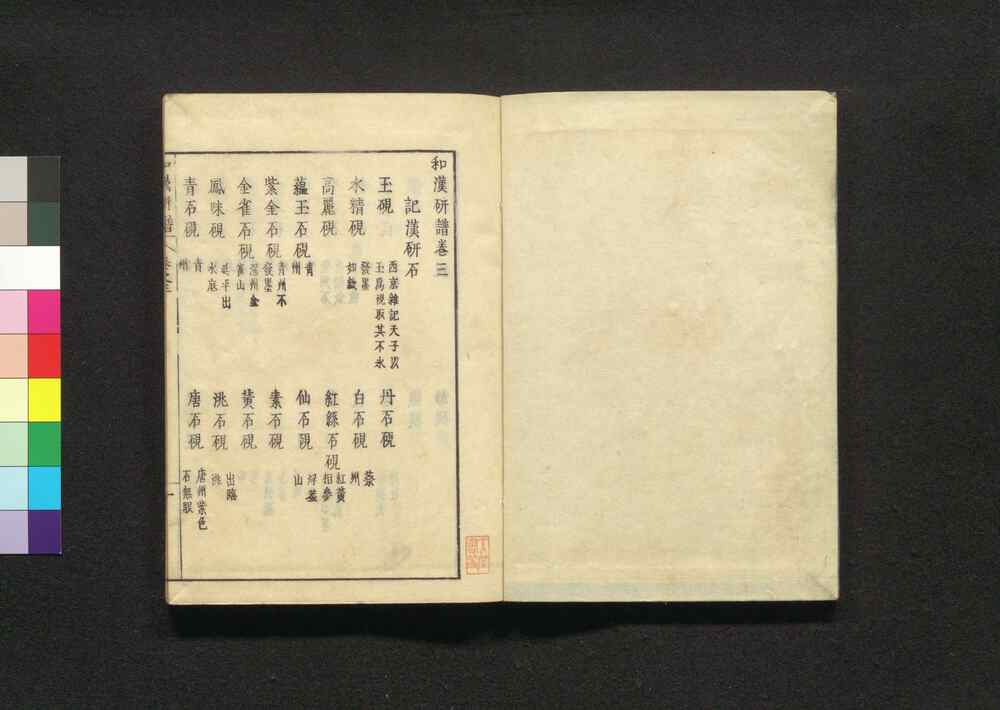 和漢研譜卷三
記漢研石
玉硯 西京雜記天子以
玉為硯取其不氷
丹石硯
水精硯 發墨
如歙
白石硯 蔡
州
高麗硯
紅絲石硯 紅黃
相參
蘊玉石硯 青
州
仙石硯 浮蓋
山
紫金石硯 青州不
發墨
素石硯
金雀石硯 淄州金
雀山
黃石硯
鳳味硯 延平出
水底
洮石硯 出臨
洮
青石硯 青
州
唐石硯 唐州紫色
石無眼